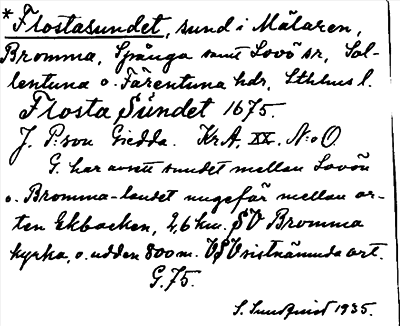 *Flostasundet, sund i Mälaren,
Bromma, Spånga samt Lovö sr, Sol-
lentuna o. Färentuna hdr, Sthlms l.
Flosta Sündet 1675.
J. P:son Giedda. Kr.A. XX. N:o O.
G. har avsett sundet mellan Lovön
o. Bromma-landet ungefär mellan or-
ten Ekbacken, 2,6 km. SV Bromma
kyrka, o. udden 800 m. VSV sistnämnda ort.
G. 75.
S. Sundquist 1935.